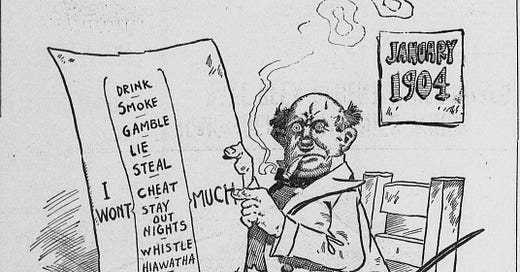 JANUARY
1904
DRINK
SMOKE
GAMBLE
LIE
STEAL
CHEAT
STAY
OUT
NIGHTS
WHISTLE
HIAWATHA
I
WONT
MUCH